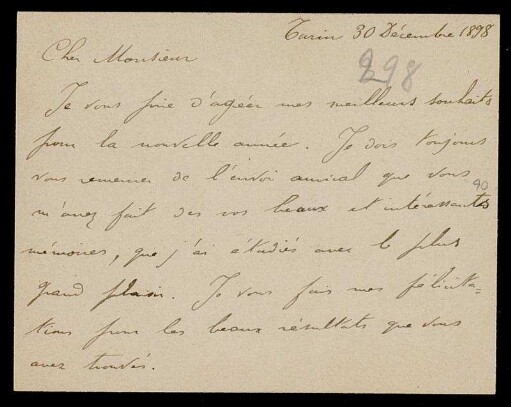 Turin 30 Décembre 1898
298
Cher Monsieur
Je vous prie d'agréer mes meilleurs souhaits
pour la nouvelle année. Je dois toujours
vous remercier de l'envoi amical que vous
90
m'avez fait des vos beaux et intéressantes
mémoires, que j'ai étudiés avec le plus
grand plaisir. Je vous fais mes félicita=
tions pour les beaux résultats que vous
avez trouvés.